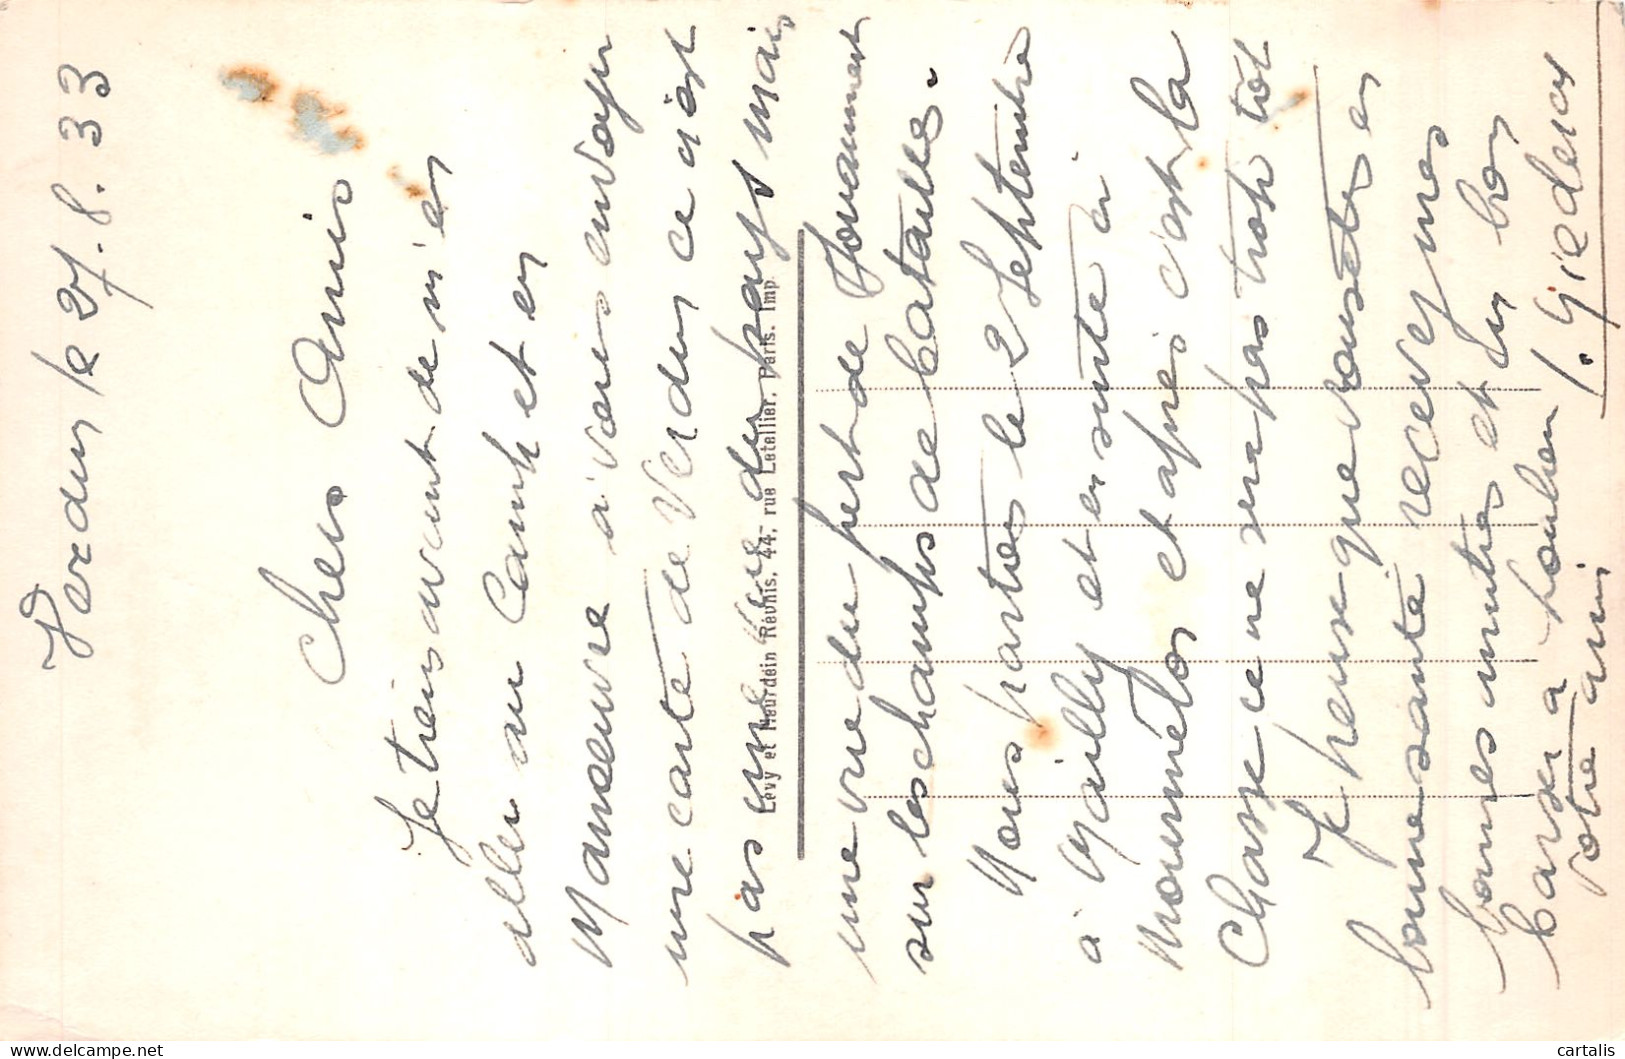 Verdun le 27.8.33
Chers Amis
Je tiens avant de m'en
aller au Camp et en
Manoeuvre a vous envoyer
une carte de Verdun ce n'est
pas une vue du pays mais
Levy et Neurdein Réunis, 44, rue Letellier, Paris. Imp.
une vue du fort de Douaumont
sur les champs de batailles.
Nous partons le 2 Septembre
a Mailly et ensuite a
Mourmélon et apres c'est la
Chasse ce ne sera pas trop tôt
Je pense que vous êtes en
bonne santé recevez mes
bonnes amitiés et un bon
baiser a
votre ami
cartalis